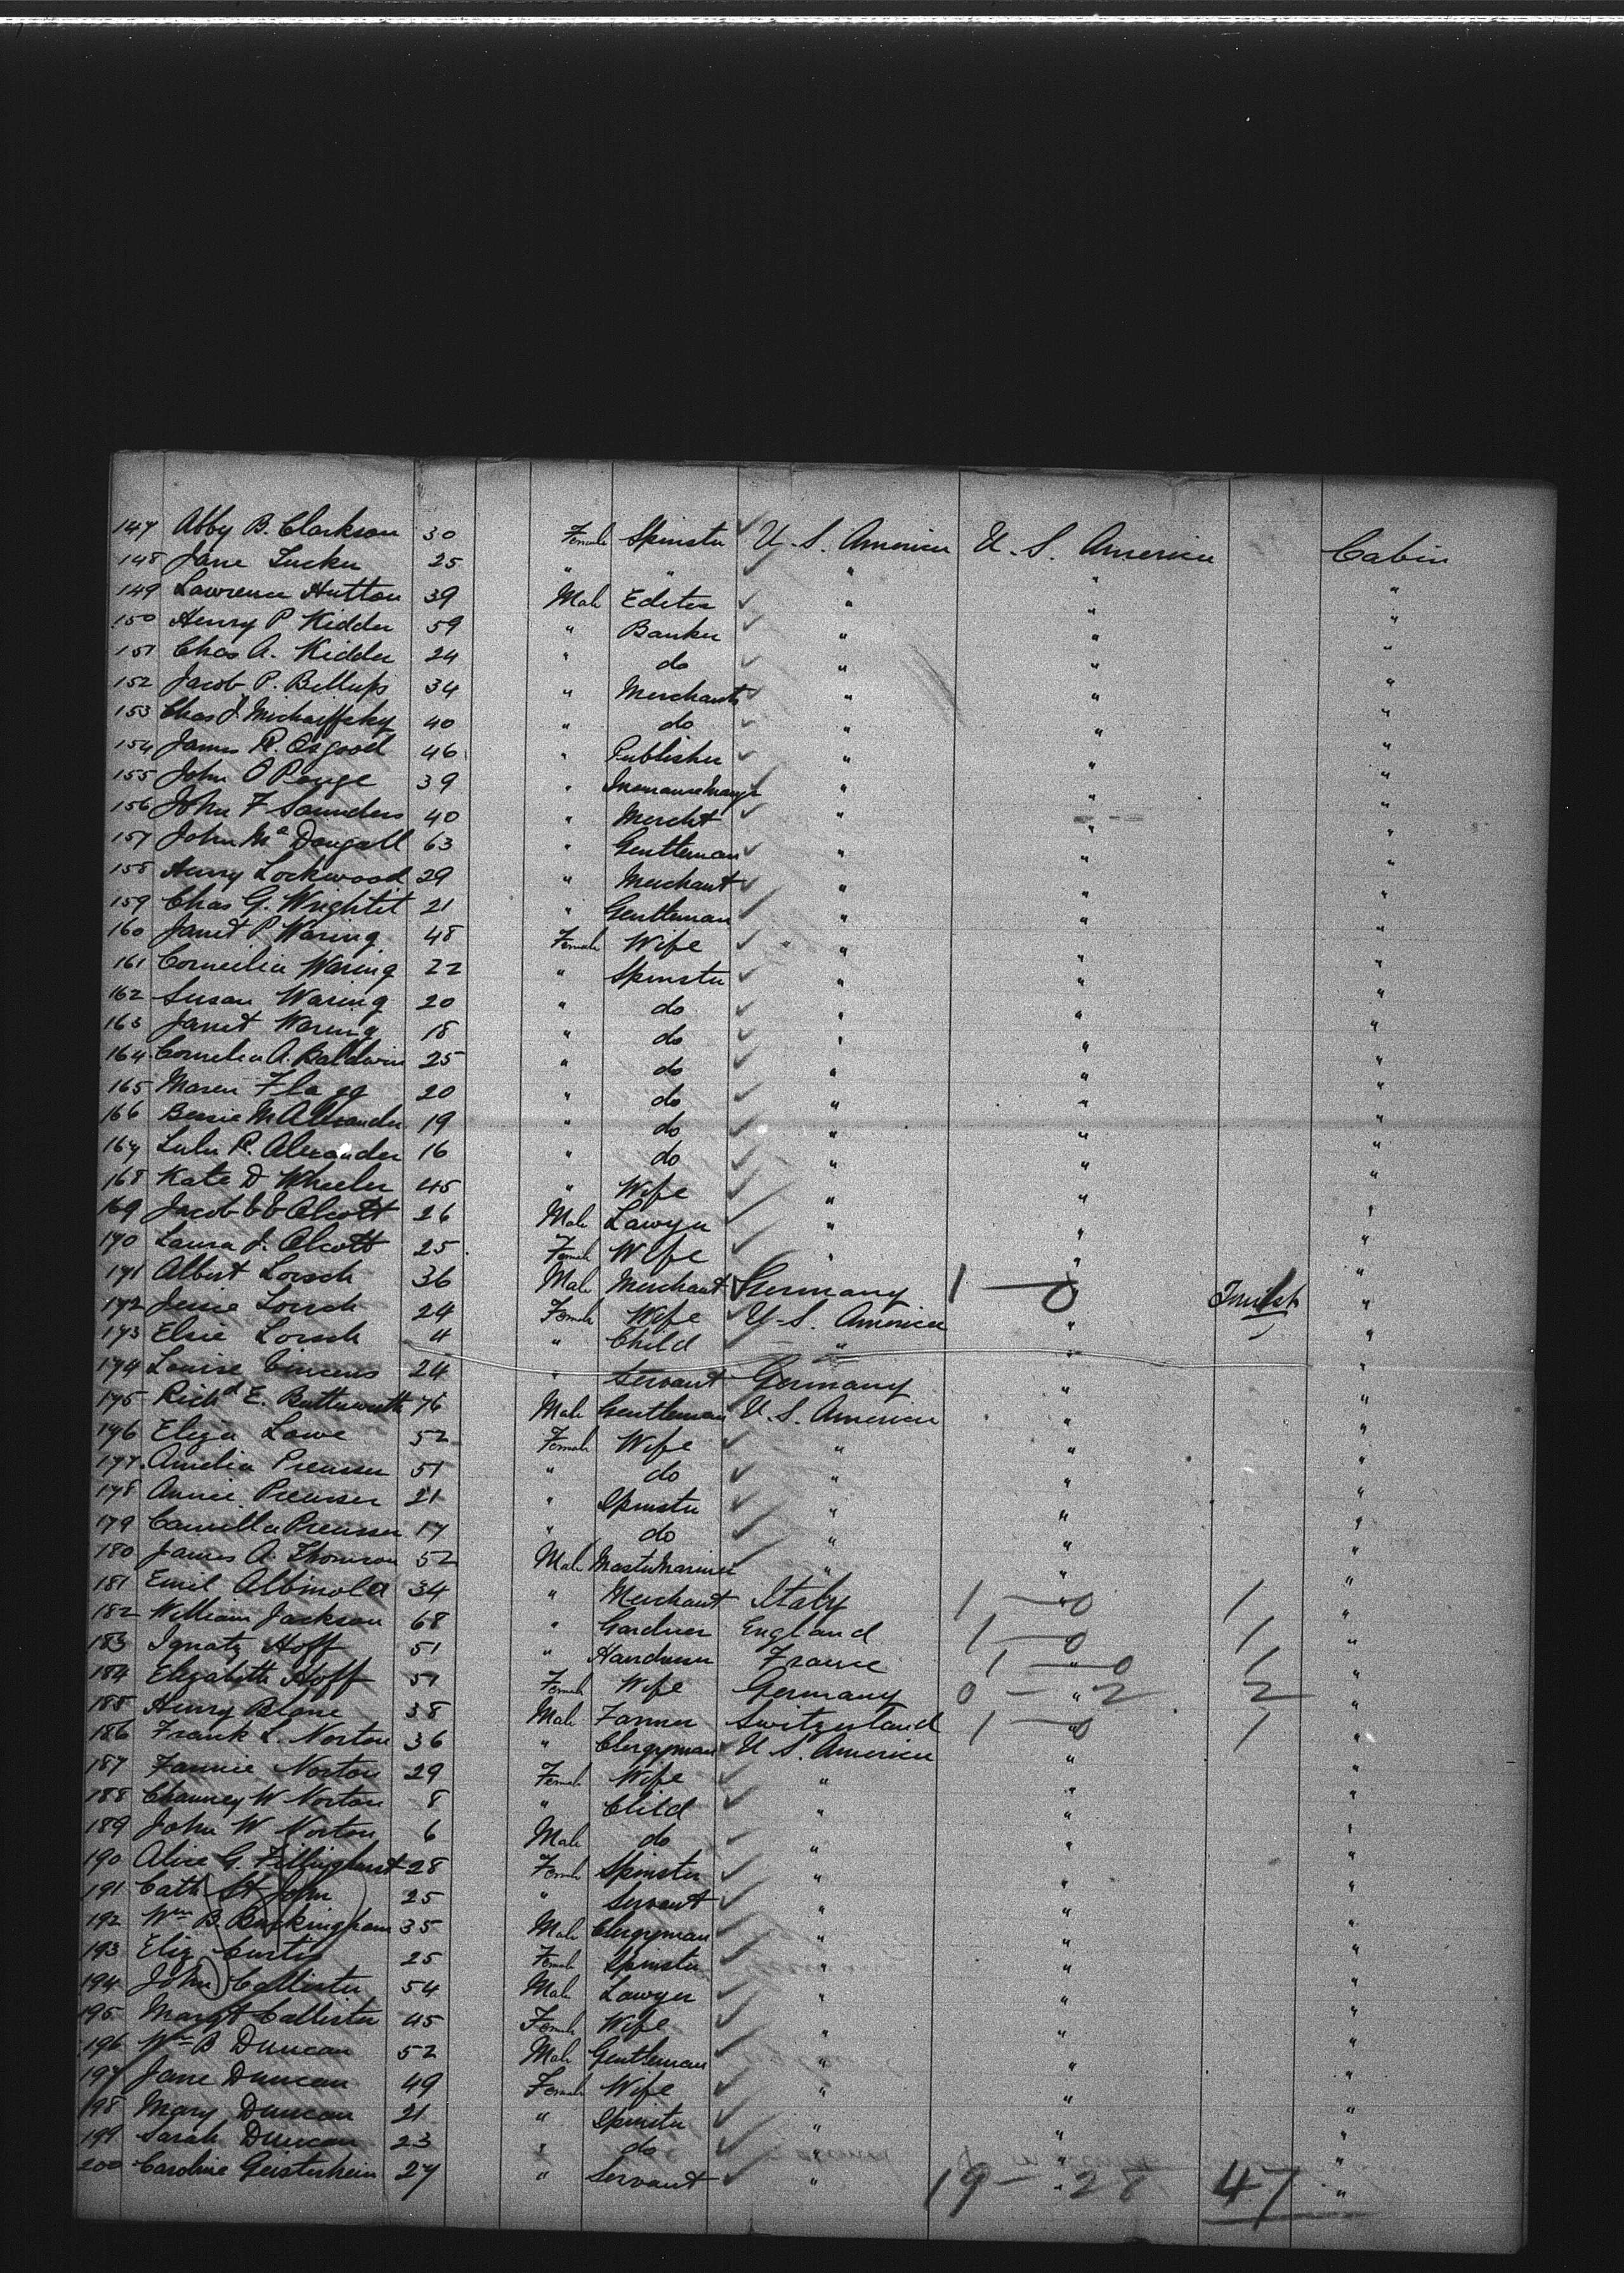 147 Abby B. Clarkson 30 Female Spinster U. S. America U. S. America Cabin
148 Jane Tucker 25 " " " " "
149 Lawrence Hutton 39 Male Editor " " "
150 Henry P Kidder 59 " Banker " " "
151 Chas A. Kidder 24 " do " " "
152 Jacob P. Billups 34 " Merchant " " "
153 Chas J. 40 " do " " "
154 James R. Osgood 46 " Publisher " " "
155 John O 39 " " " "
156 John F Saunders 40 " Mercht " " "
157 John Mc Dougall 63 " Gentleman " " "
158 Henry Lockwood 29 " Merchant " " "
159 Chas G. 21 " Gentleman " " "
160 Janet P. Waring 48 Female Wife " " "
161 Cornelia Waring 22 " Spinster " " "
162 Susan Waring 20 " do " " "
163 Janet Waring 18 " do " " "
164 Cornelia A. Baldwin 25 " do " " "
165 Maren Flagg 20 " do " " "
166 Bessie M Alexander 19 " do " " "
167 Lulu R. Alexander 16 " do " " "
168 Kate D Wheeler 45 " Wife " " "
169 Jacob Alcott 26 Male Lawyer " " "
170 Laura J. Alcott 25 Female Wife " " "
171 Albert Lorsch 36 Male Merchant Germany 1 — 0 " "
172 Jessie Lorsch 24 Female Wife U. S. America " "
173 Elsie Lorsch 4 " Child " " "
174 Louise 24 " Servant Germany " "
175 Richd E. Butterworth 76 Male Gentleman U. S. America " "
176 Eliza Lowe 52 Female Wife " " "
177 Amelia Preusser 51 " do " " "
178 Annie Preusser 21 " Spinster " " "
179 Camilla Preusser 17 " do " " "
180 James A. Thomson 52 Male Master Mariner " " "
181 Emil Albinola 34 " Merchant Italy 1 — 0 " 1 "
182 William Jackson 68 " Gardner England 1 — 0 1 "
183 Ignatz Hoff 51 " France 1 — 0 " 1 "
184 Elizabeth Hoff 51 Female Wife Germany 0 — 2 " 2 "
185 Henry Blane 38 Male Farmer Switzerland 1 — 0 " 1 "
186 Frank L. Norton 36 " Clergyman U. S. America " "
187 Fannie Norton 29 Female Wife " " "
188 Chauncy W Norton 8 " Child " " "
189 John W Norton 6 Male do " " "
190 Alice G. Fillinghast 28 Female Spinster " " "
191 Cath St John 25 " Servant " " "
192 Wm B. Buckingham 35 Male Clergyman " " "
193 Eliz Curtis 25 Female Spinster " " "
194 John Callister 54 Male Lawyer " " "
195 Margt Callister 45 Female Wife " " "
196 Wm B Duncan 52 Male Gentleman " " "
197 Jane Duncan 49 Female Wife " " "
198 Mary Duncan 21 " Spinster " " "
199 Sarah Duncan 23 " do " " "
200 Caroline Geisterheim 27 " Servant " " "
19 — 28 47